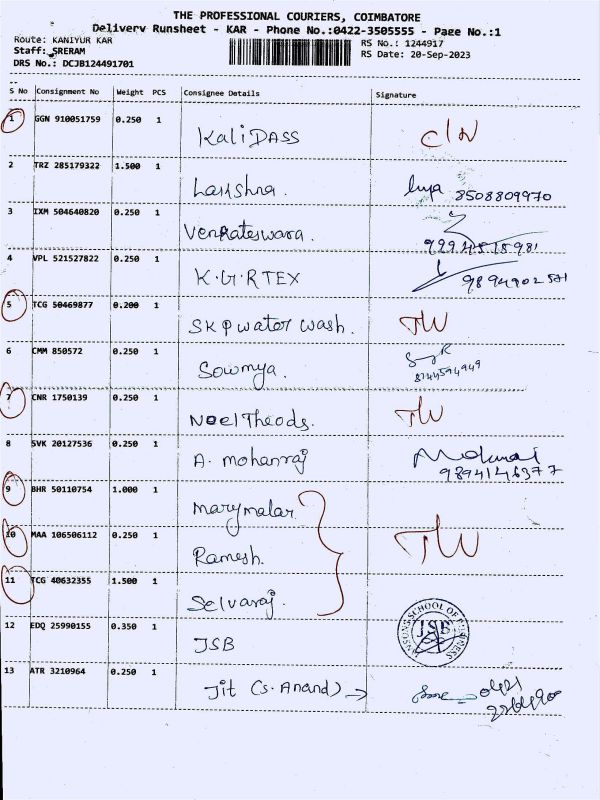 THE PROFESSIONAL COURIERS, COIMBATORE
Delivery Runsheet - KAR - Phone No.:0422-3505555 - Page No.:1
Route: KANIYUR KAR RS No.: 1244917
Staff: SRERAM RS Date: 20-Sep-2023
DRS No.: DCJB124491701
S No Consignment No Weight PCS Consignee Details Signature
1 GGN 910051759 0.250 1 Kali DASS
2 TRZ 285179322 1.500 1 8508809970
3 IXM 504640820 0.250 1 Venkateswara.
4 VPL 521527822 0.250 1 K.G.R TEX
5 TCG 50469877 0.200 1 SKP water wash.
6 CMM 850572 0.250 1 Sowmya. 8144594949
7 CNR 1750139 0.250 1 Noel Theods.
8 SVK 20127536 0.250 1 A. mohanraj 9894146377
9 BHR 50110754 1.000 1 Marymalar
10 MAA 106506112 0.250 1 Ramesh.
11 TCG 40632355 1.500 1 Selvaraj.
12 EDQ 25990155 0.350 1 JSB JANSONS SCHOOL OF BUSINESS JSB
13 ATR 3210964 0.250 1 Jit (S. Anand) →